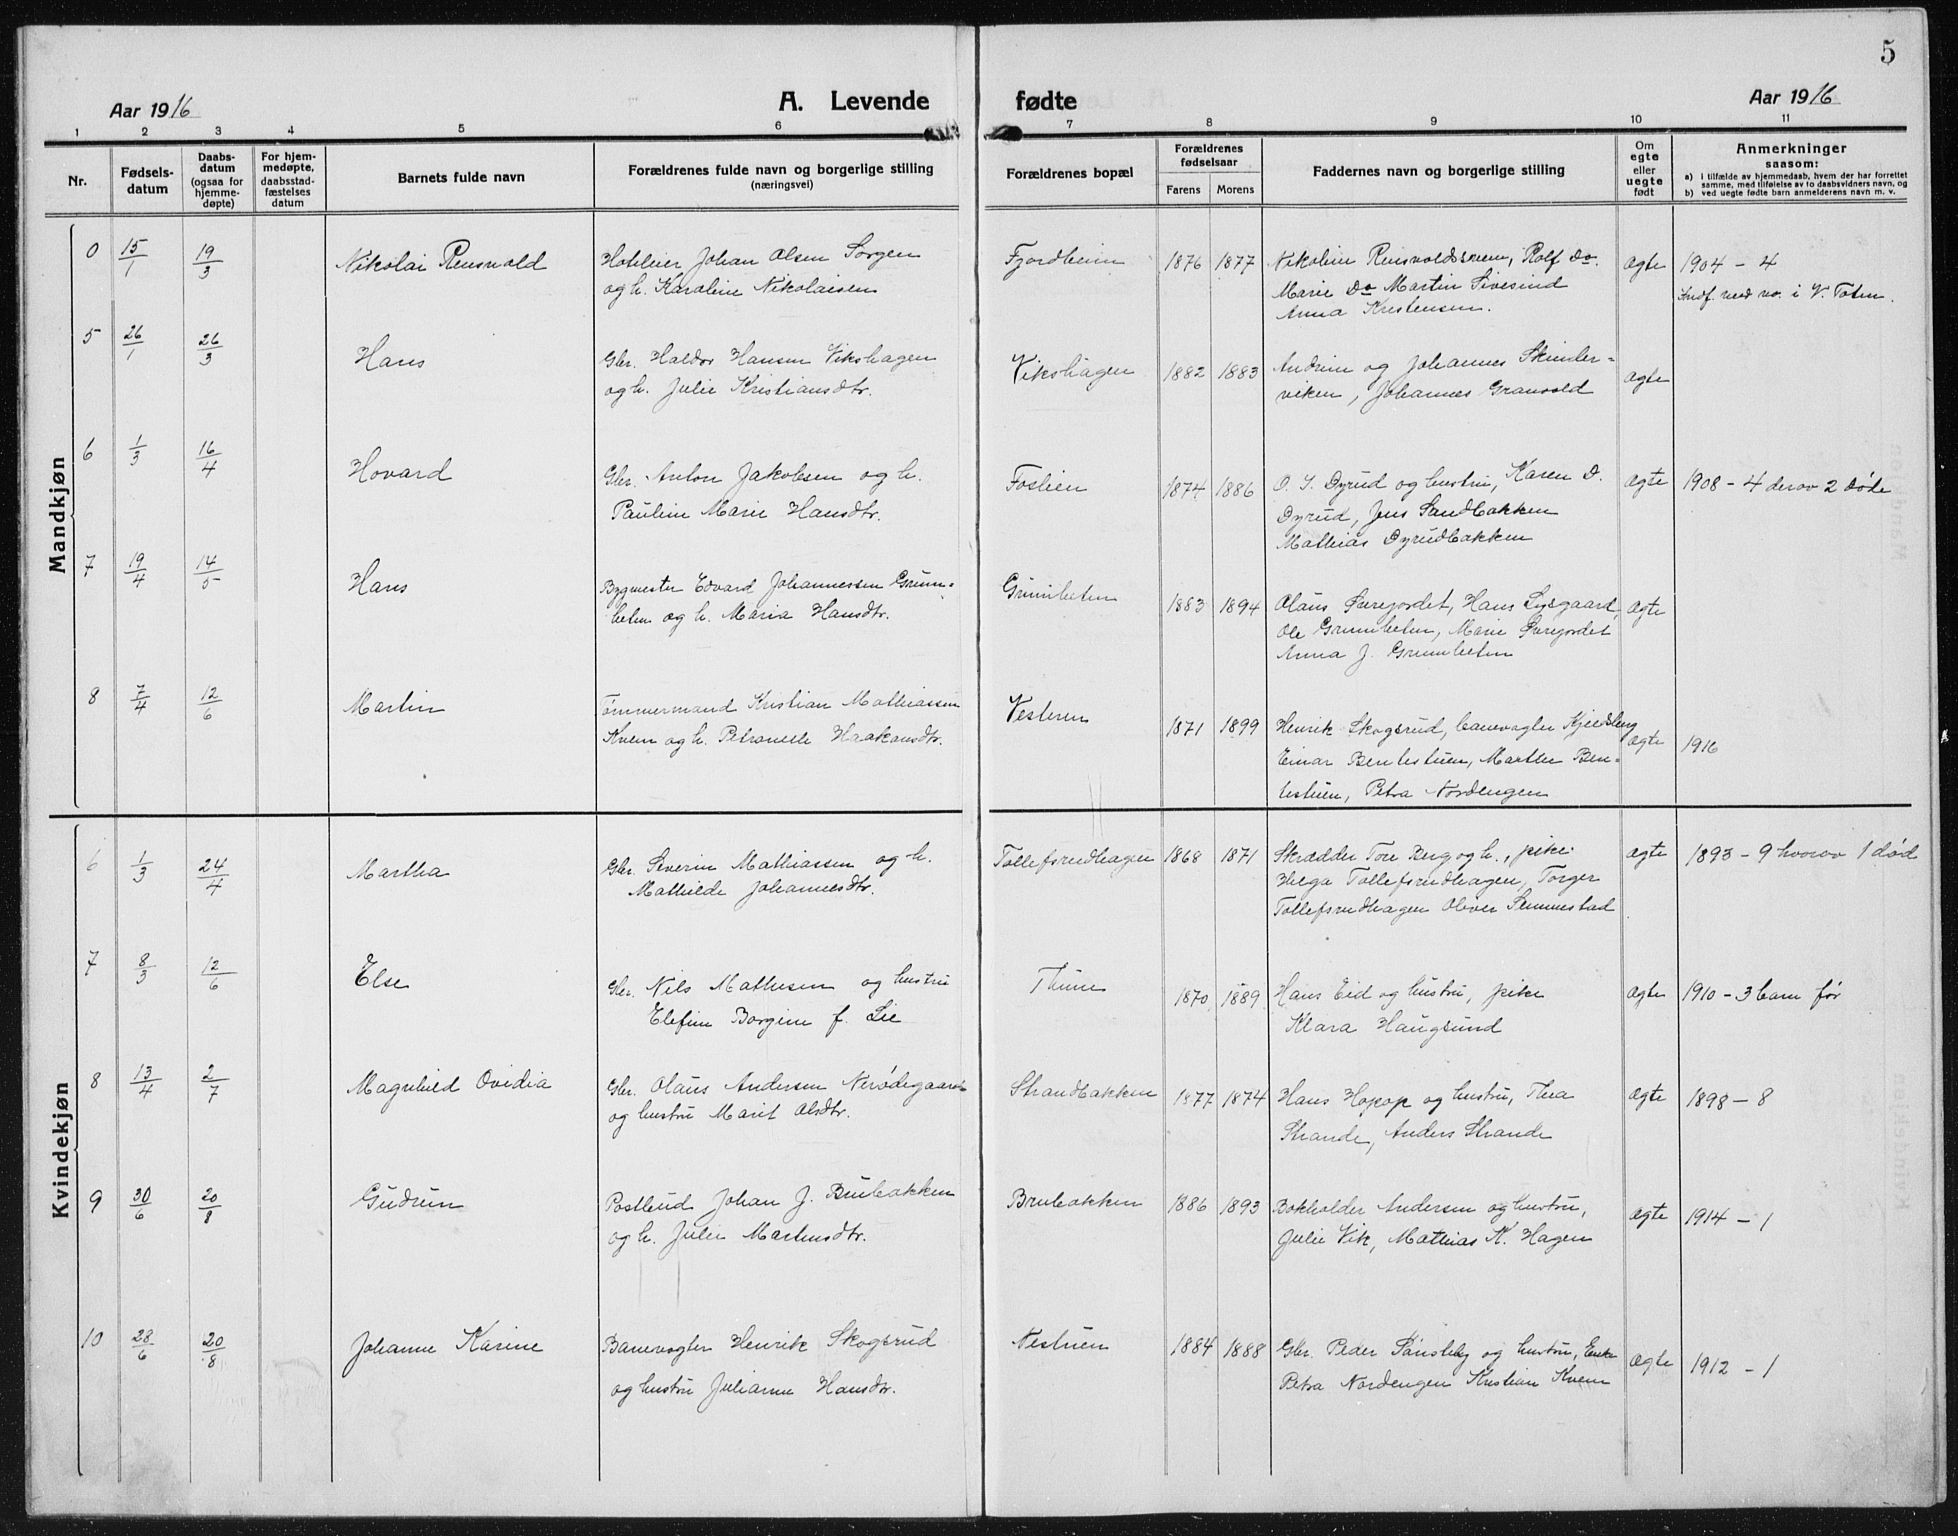 5
Aar 1916
A. Levende fødte
Aar 1916
1 2 3 4 5 6 7 8 9 10 11
Nr.
Fødsels-
datum
Daabs-
datum
(ogsaa for
hjemme-
døpte)
For hjem-
medøpte,
daabsstad-
fæstelses
datum
Barnets fulde navn
Forældrenes fulde navn og borgerlige stilling
(næringsvei)
Forældrenes bopæl
Forældrenes
fødselsaar
Farens Morens
Faddernes navn og borgerlige stilling
Om
egte
eller
uegte
født
Anmerkninger
saasom:
a) i tilfælde av hjemmedaab, hvem der har forrettet
samme, med tilføielse av to daabsvidners navn, og
b) ved uegte fødte barn anmelderens navn m. v.
Mandkjøn
0 15/1 19/3 Nikolai Rensvold Hoteleier Johan Olsen Sorgen Fjordheim 1876 1877 Nikoline Rensvoldsveen, Rolf Do. ægte 1904 - 4
og h. Karoline Nikolaisen Marie Do Martin Sivesind Indf. med no. i V. Toten.
Anna Kristensen.
5 26/1 26/3 Hans Gbr. Haldor Hansen Vikshagen Vikshagen 1882 1883 Andrine og Johannes Skinder=
og h. Julie Kristiansdtr. viken, Johannes Granvold ægte
6 1/3 16/4 Hovard Gbr. Anton Jakobsen og h. Foslien 1874 1886 O. J. Dyrud og hustru, Karen D. ægte 1908 - 4 derav 2 døde
Pauline Marie Hansdtr. Dyrud, Jens Sandbakken
Mathias Dyrudbakken
7 19/4 14/5 Hans Bygmester Edvard Johannessen Grim= Grimbeten 1883 1894 Olaus Sørejordet, Hans Lysgaard, ægte
beten og h. Maria Hansdtr. Ole Grimbeten, Marie Sørejordet
Anna J. Grimbeten
8 7/4 12/6 Martin Tømmermand Kristian Mathiassen Vesteren 1871 1899 Henrik Skogsrud, banevogter Kjeldsberg
Kvem og h. Petronelle Haakonsdtr. Einar Benlestuen, Marthe Ben= ægte 1916
lestuen, Petra Nordengen
Kvindekjøn
6 1/3 24/4 Martha Gbr. Severin Mathiassen og h. Tollefsrudhagen 1868 1871 Skrædder Tore Berg og h., pike ægte 1893 - 9 hvorav 1 død
Mathilde Johannesdtr. Helga Tollefsrudhagen, Torger
Tollefsrudhagen Oliver Semmestad
7 8/3 12/6 Else Gbr. Nils Mathisen og hustru Thune 1870 1889 Hans Eid og hustru, pike ægte 1910 - 3 barn før
Elefine Borgine f. Lie Klara Haugsund
8 13/4 2/7 Magnhild Ovidia Gbr. Olaus Andersen Nerødegaard Strandbakken 1877 1874 Hans Hopop og hustru, Thea ægte 1898 - 8
og hustru Marit Olsdtr. Strande, Anders Strande
9 30/6 20/8 Gudrun Postbud Johan J. Brubakken Brubakken 1886 1893 Bokholder Andersen og hustru, ægte 1914 - 1
og h. Julie Martinsdtr. Julie Vik, Mathias K. Hagen
10 28/6 20/8 Johanne Karine Banevogter Henrik Skogsrud Nestuen 1884 1888 Gbr. Peder Sønsteby og hustru, Enke ægte 1912 - 1
og hustru Julianne Hansdtr. Petra Nordengen Kristian Kvem